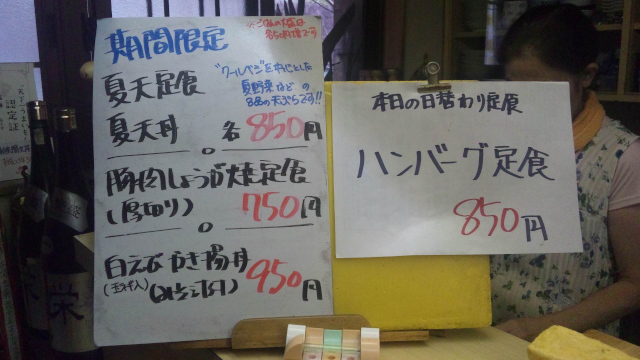 期間限定
夏天定食
夏天丼 各850円
夏野菜などの
8品の天ぷらです!!
豚肉しょうが焼定食
(厚切り) 750円
白えびかき揚丼
(玉子入) 950円
本日の日替わり定食
ハンバーグ定食
850円
認定証
栄